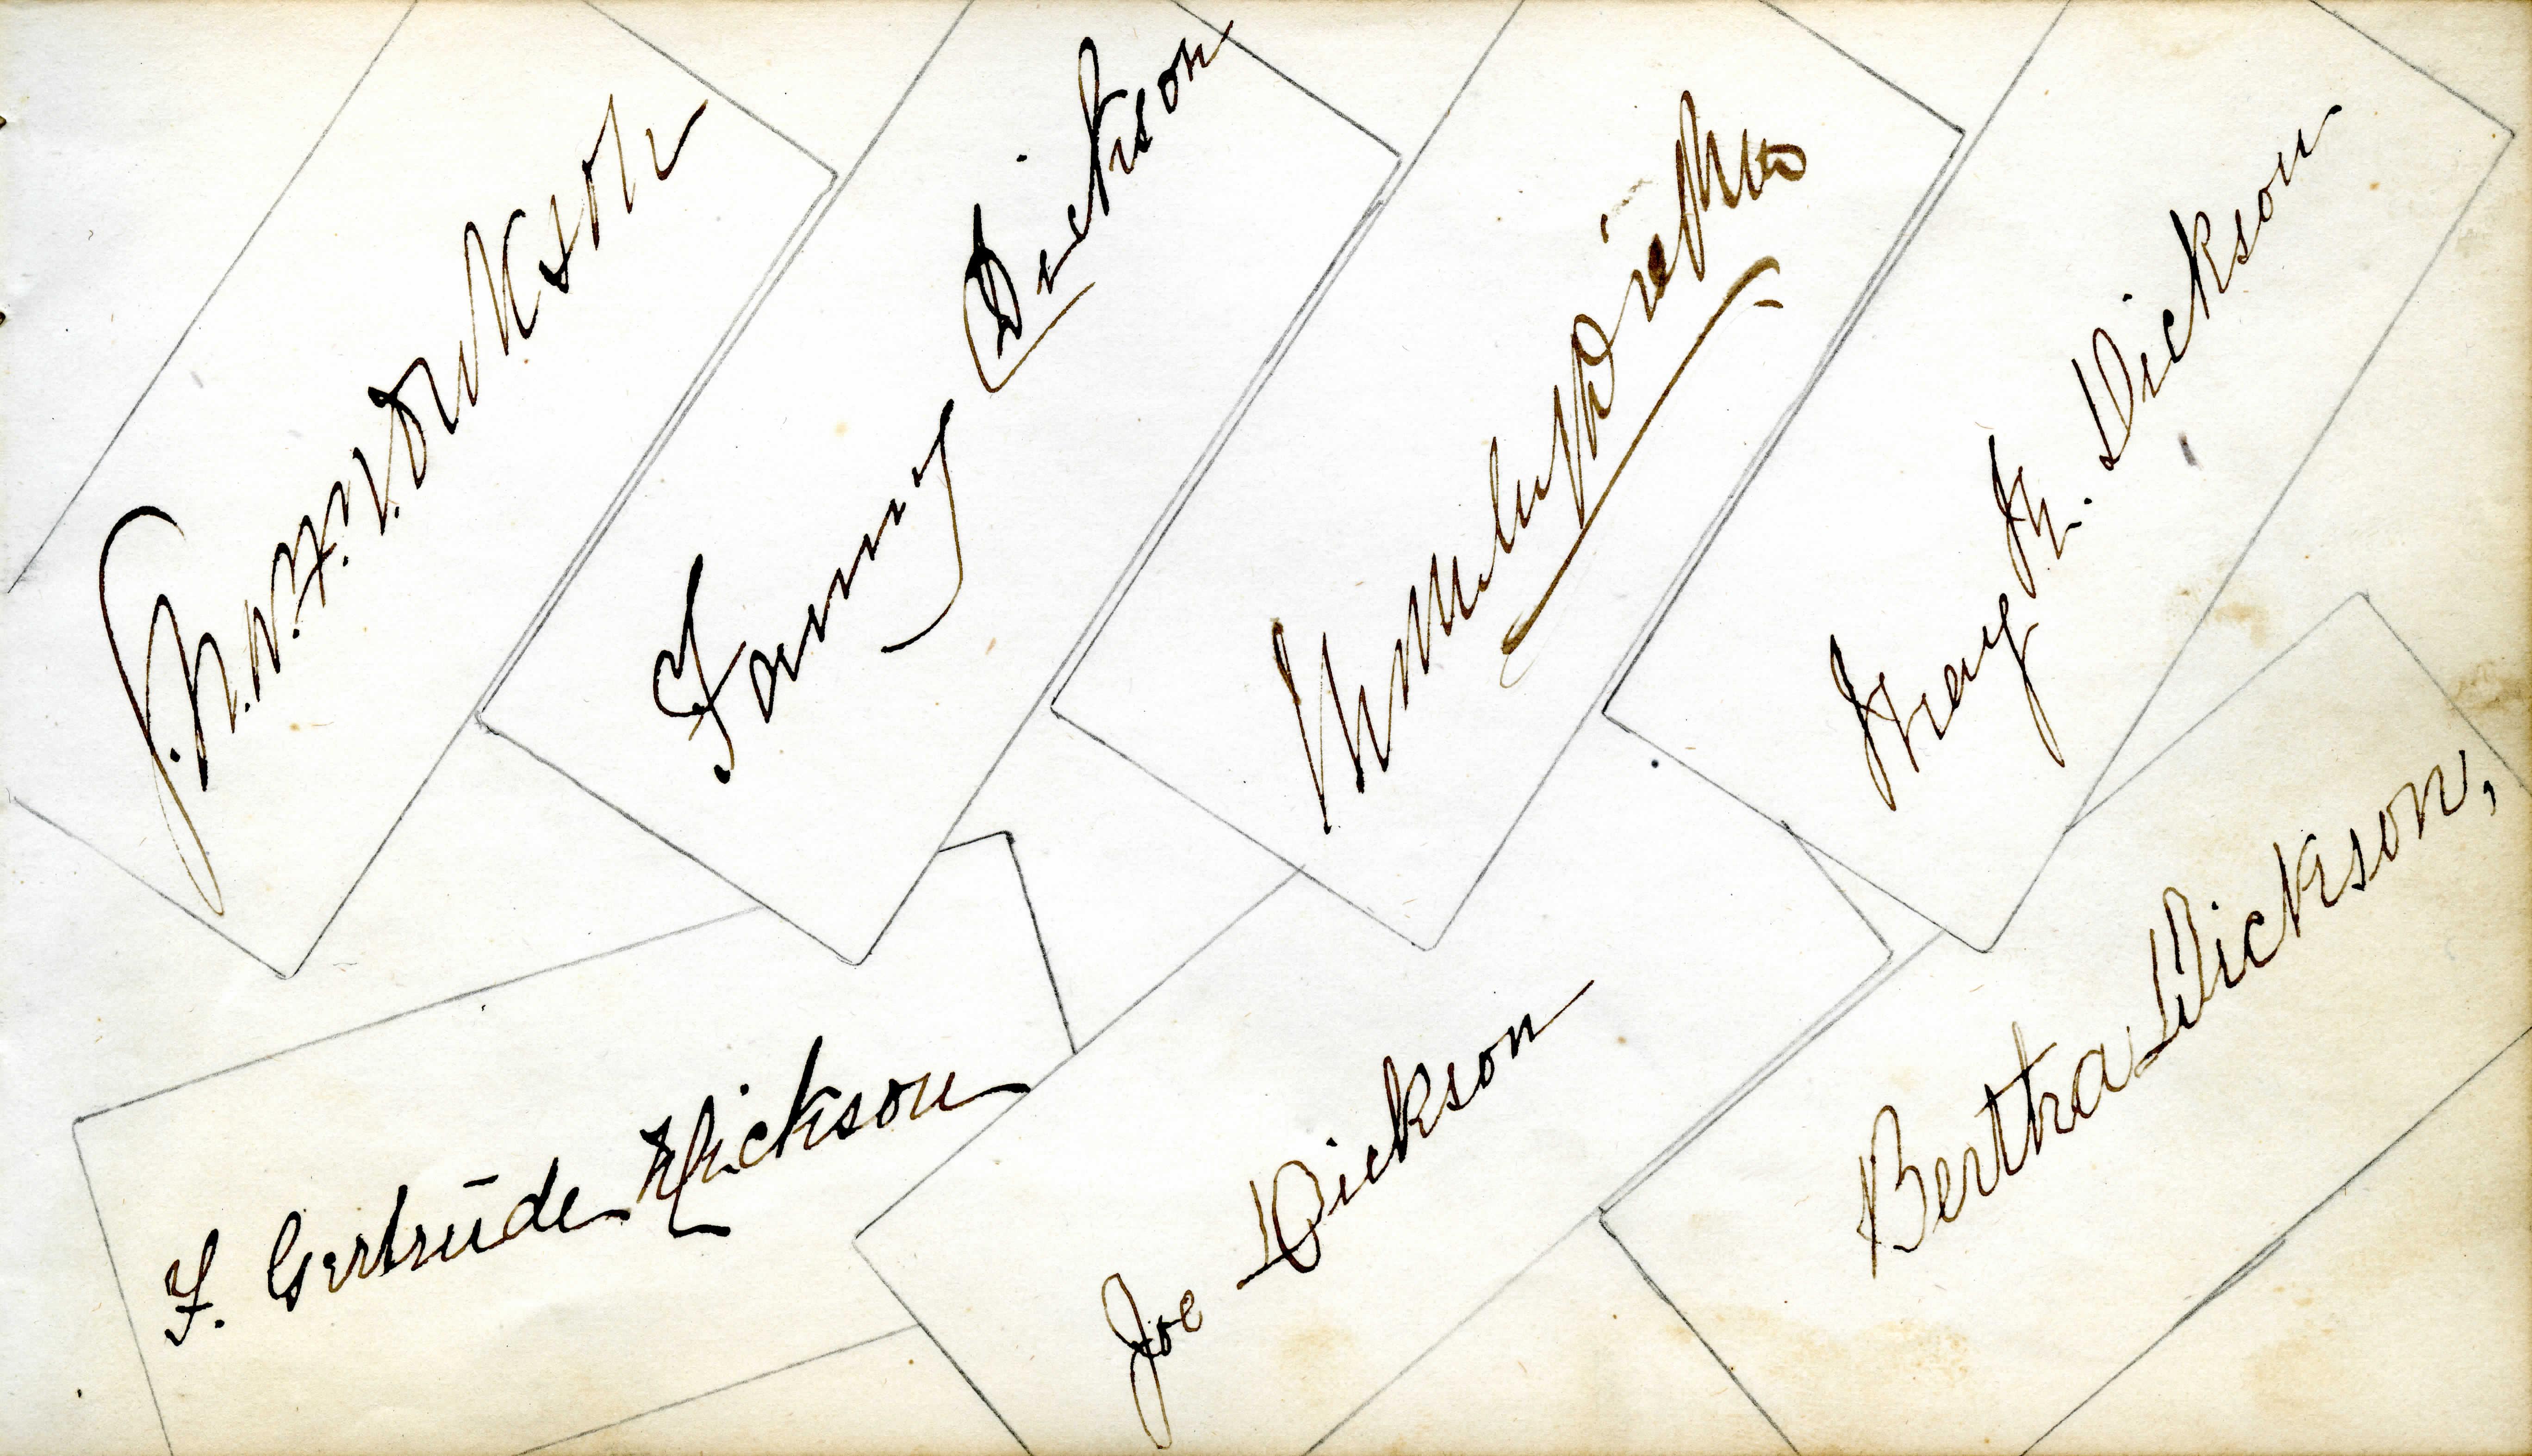 Dickson
Fanny Dickson
Dickson
May M. Dickson
F. Gertrude Dickson
Joe Dickson
Bertha Dickson,